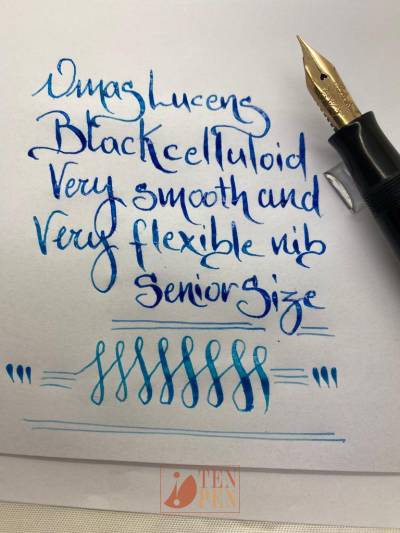 Omas Lucens
Black celluloid
Very smooth and
Very flexible nib
Senior Size
TEN
PEN